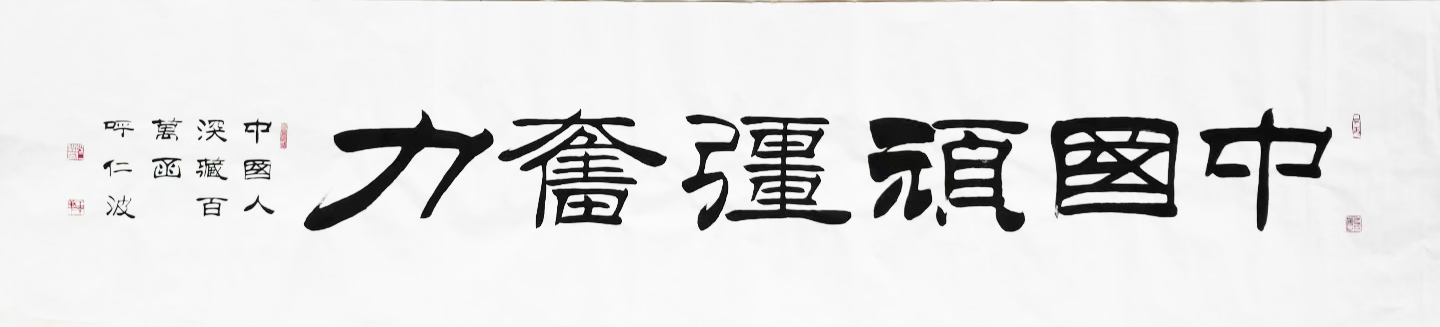 中國頑彊奮力
中國人
深藏百
萬函
呼仁波